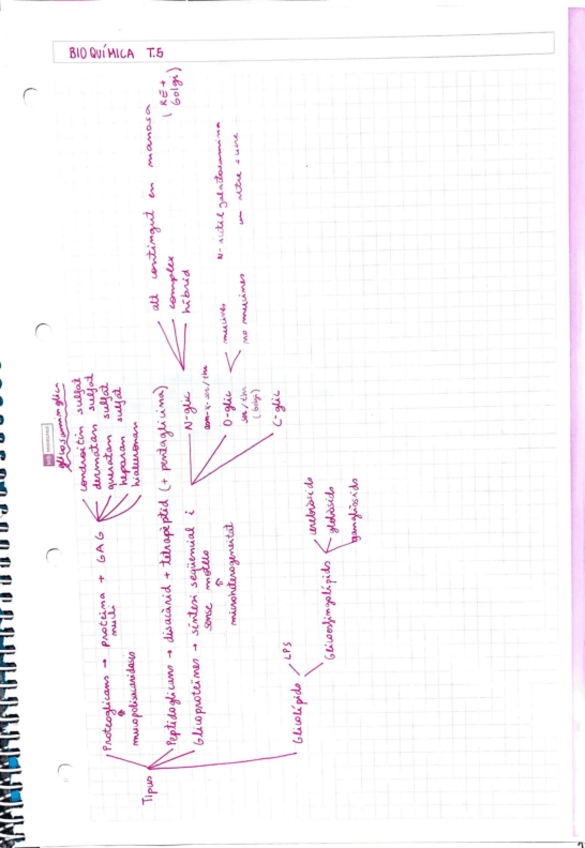 BIOQUÍMICA T.5
Tipus
Proteoglicans → proteïna + GAG
nucli
mucopolisacàridos
glicosaminoglicà
condroitín sulfat
dermatan sulfat
queratan sulfat
heparan sulfat
hialuronan
Peptidoglicans → disacàrid + tetrapèptid (+ pentaglicina)
Glicoproteïnes → síntesi seqüencial i
sense motllo
microheterogeneïtat
N-glic
asn-x-ser/thr
alt contingut en manosa
complex
híbrid
(RE +
Golgi)
O-glic
ser/thr
(Golgi)
mucines
no mucines
N-acetil galactosamina
C-glic
Glicolípids
LPS
Glicoesfingolípids
cerebròsids
globòsids
gangliòsids